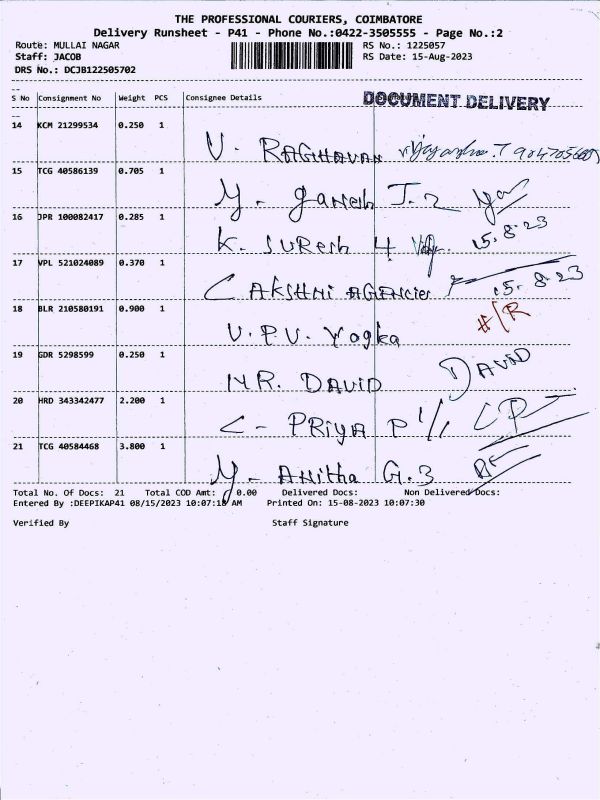 THE PROFESSIONAL COURIERS, COIMBATORE
Delivery Runsheet - P41 - Phone No.:0422-3505555 - Page No.:2
Route: MULLAI NAGAR RS No.: 1225057
Staff: JACOB RS Date: 15-Aug-2023
DRS No.: DCJB122505702
S No Consignment No Weight PCS Consignee Details DOCUMENT DELIVERY
14 KCM 21299534 0.250 1
V. RAGHAVAN
15 TCG 40586139 0.705 1
M. ganesh J.2
16 JPR 100082417 0.285 1
K. SUResh 4 15.8.23
17 VPL 521024089 0.370 1
LAKSHMI AGENCies 15.8.23
18 BLR 210580191 0.900 1
V.P.V. Yogka #/R
19 GDR 5298599 0.250 1
MR. DAVID DAVID
20 HRD 343342477 2.200 1
C - PRiyA P 1/1 CP
21 TCG 40584468 3.800 1
M - Anitha G.3
Total No. Of Docs: 21 Total COD Amt: 0.00 Delivered Docs: Non Delivered Docs:
Entered By :DEEPIKAP41 08/15/2023 10:07:18 AM Printed On: 15-08-2023 10:07:30
Verified By Staff Signature